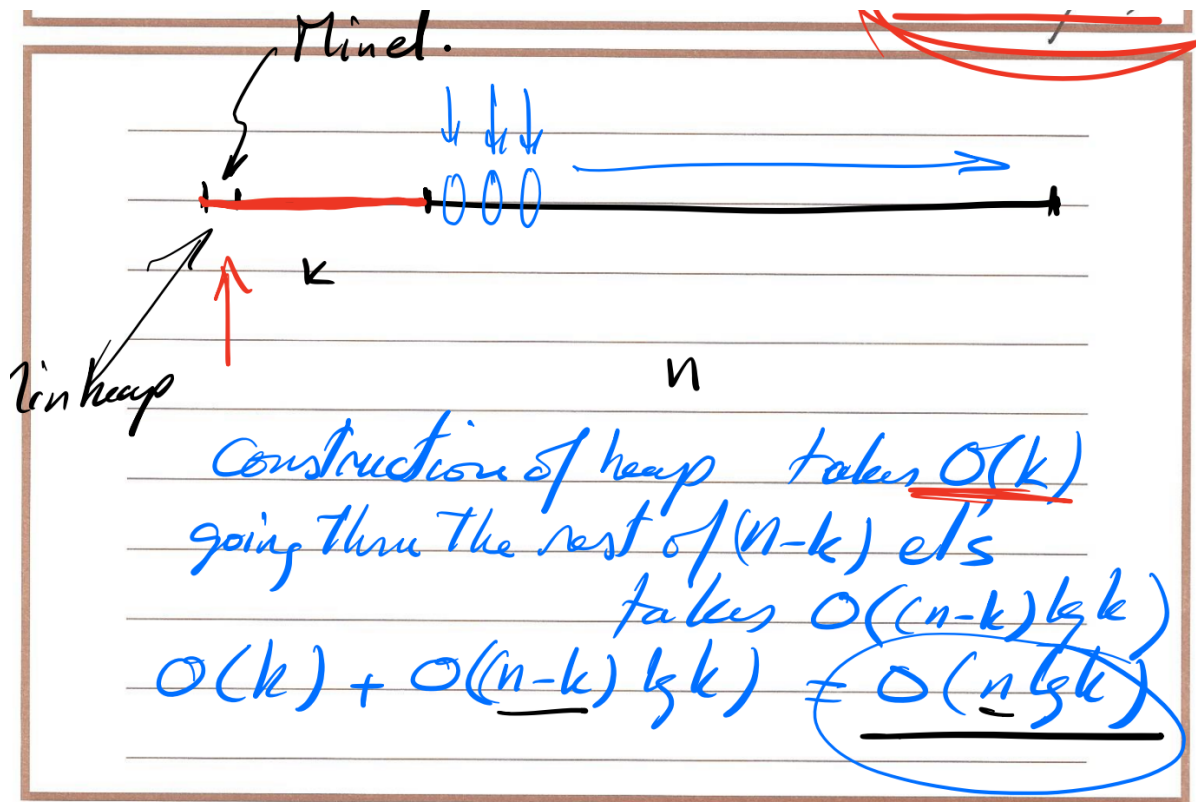 Min el.
k
Min heap
n
construction of heap takes O(k)
going thru the rest of (n-k) el's
takes O((n-k) lg k)
O(k) + O((n-k) lg k) = O(n lg k)